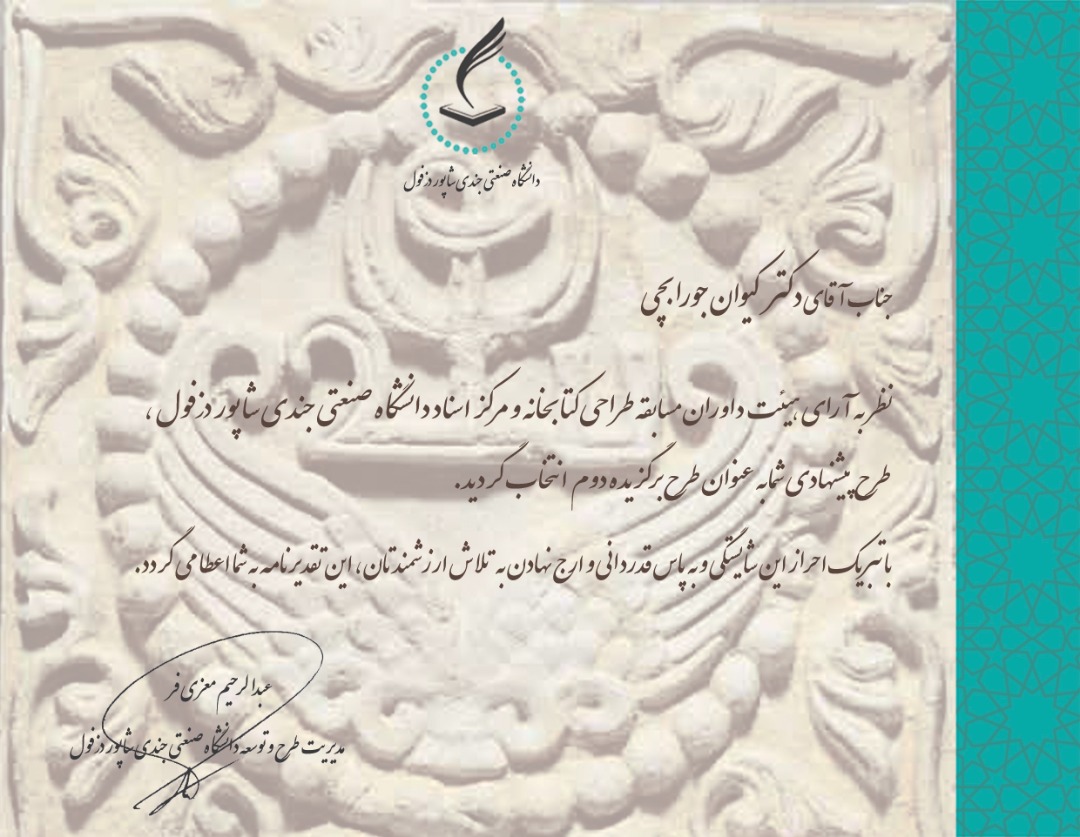 دانشگاه صنعتی جندی شاپور دزفول
جناب آقای دکتر کیوان جورابچی
نظر به آرای هیئت داوران مسابقه طراحی کتابخانه و مرکز اسناد دانشگاه صنعتی جندی شاپور دزفول ،
طرح پیشنهادی شما به عنوان طرح برگزیده دوم انتخاب گردید.
با تبریک احراز این شایستگی و به پاس قدردانی و ارج نهادن به تلاش ارزشمندتان، این تقدیرنامه به شما اعطا می گردد.
عبدالرحیم معزی فر
مدیریت طرح و توسعه دانشگاه صنعتی جندی شاپور دزفول